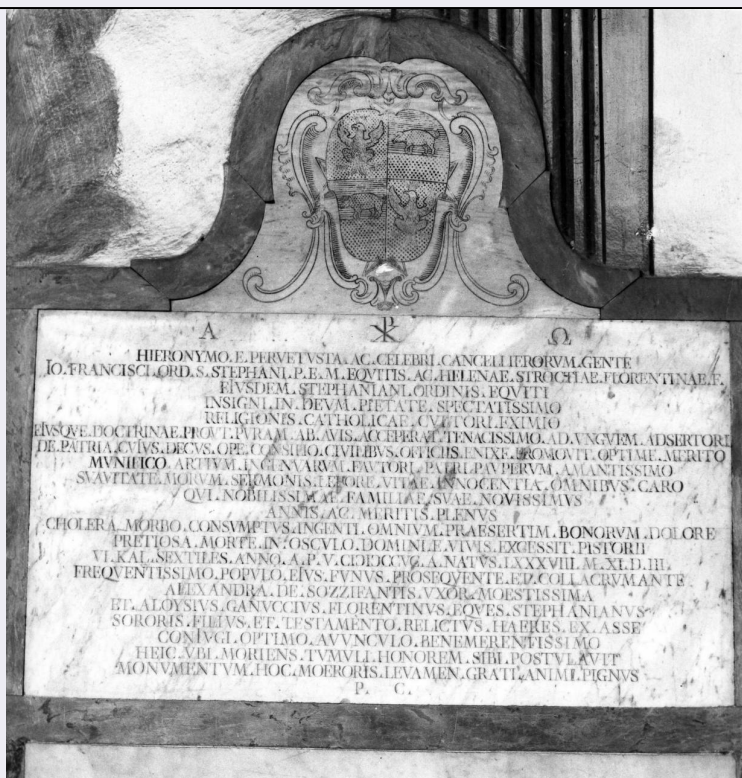 Α ☧ Ω
HIERONYMO . E . PERVETVSTA . AC . CELEBRI . CANCELLIERORVM . GENTE
IO . FRANCISCI . ORD . S . STEPHANI . P . E . M . EQVITIS . AC . HELENAE . STROCTIAE . FLORENTINAE . F .
EIVSDEM . STEPHANIANI . ORDINIS . EQVITI
INSIGNI . IN . DEVM . PIETATE . SPECTATISSIMO
RELIGIONIS . CATHOLICAE . CVLTORI . EXIMIO
EIVSQVE . DOCTRINAE . PROVT . PVRAM . AB . AVIS . ACCEPERAT . TENACISSIMO . AD . VNGVEM . ADSERTORI
DE . PATRIA . CVIVS . DECVS . OPE . CONSILIO . CIVILIBVS . OFFICIIS . ENIXE . PROMOVIT . OPTIME . MERITO
MVNIFICO . ARTIVM . INGENVARVM . FAVTORI . PATRI . PAVPERVM . AMANTISSIMO
SVAVITATE . MORVM . SERMONIS . LEPORE . VITAE . INNOCENTIA . OMNIBVS . CARO
QVI . NOBILISSIMAE . FAMILIAE . SVAE . NOVISSIMVS
ANNIS . AC . MERITIS . PLENVS
CHOLERA . MORBO . CONSVMPTVS . INGENTI . OMNIVM . PRAESERTIM . BONORVM . DOLORE
PRETIOSA . MORTE . IN . OSCVLO . DOMINI . E . VIVIS . EXCESSIT . PISTORII
VI . KAL . SEXTILES . ANNO . A . P . V . NATVS . LXXXVIII . M . XI . D . III .
FREQVENTISSIMO . POPVLO . EIVS . FVNVS . PROSEQVENTE . ET . COLLACRVMANTE
ALEXANDRA . DE . SOZZIFANTIS . VXOR . MOESTISSIMA
ET . ALOYSIVS . GANVCCIVS . FLORENTINVS . EQVES . STEPHANIANVS
SORORIS . FILIVS . ET . TESTAMENTO . RELICTVS . HAERES . EX . ASSE
CONIVGI . OPTIMO . AVVNCVLO . BENEMERENTISSIMO
HEIC . VBI . MORIENS . TVMVLI . HONOREM . SIBI . POSTVLAVIT
MONVMENTVM . HOC . MOERORIS . LEVAMEN . GRATI . ANIMI . PIGNVS
P . C .